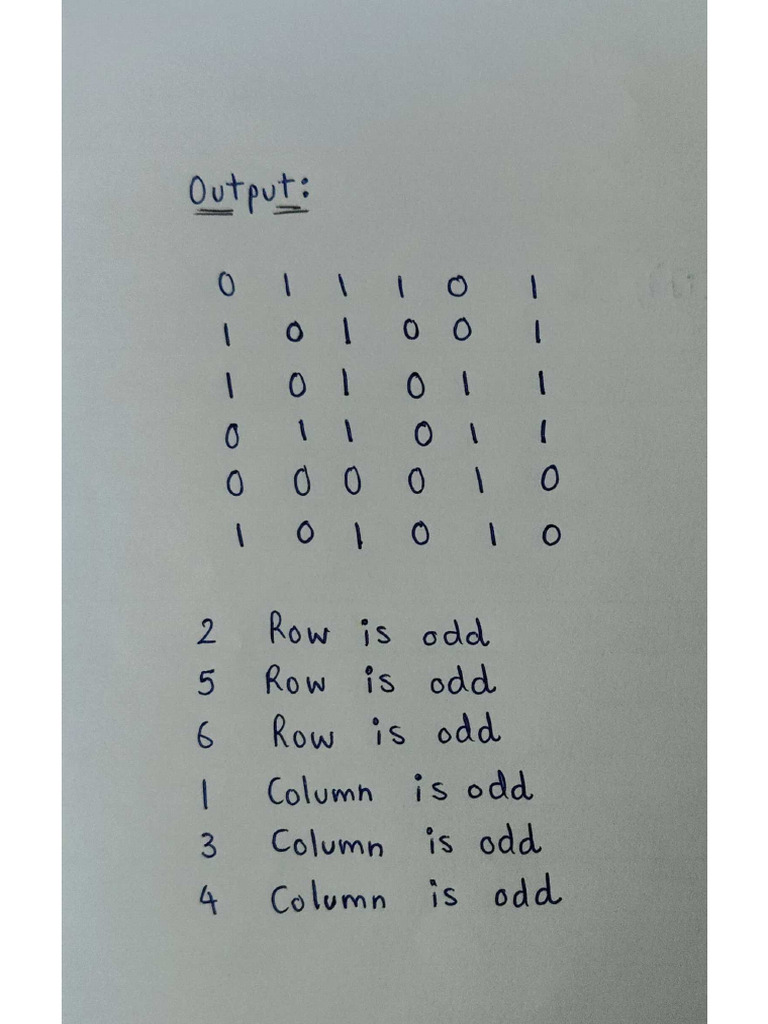 Output:
0 1 1 1 0 1
1 0 1 0 0 1
1 0 1 0 1 1
0 1 1 0 1 1
0 0 0 0 1 0
1 0 1 0 1 0
2 Row is odd
5 Row is odd
6 Row is odd
1 Column is odd
3 Column is odd
4 Column is odd